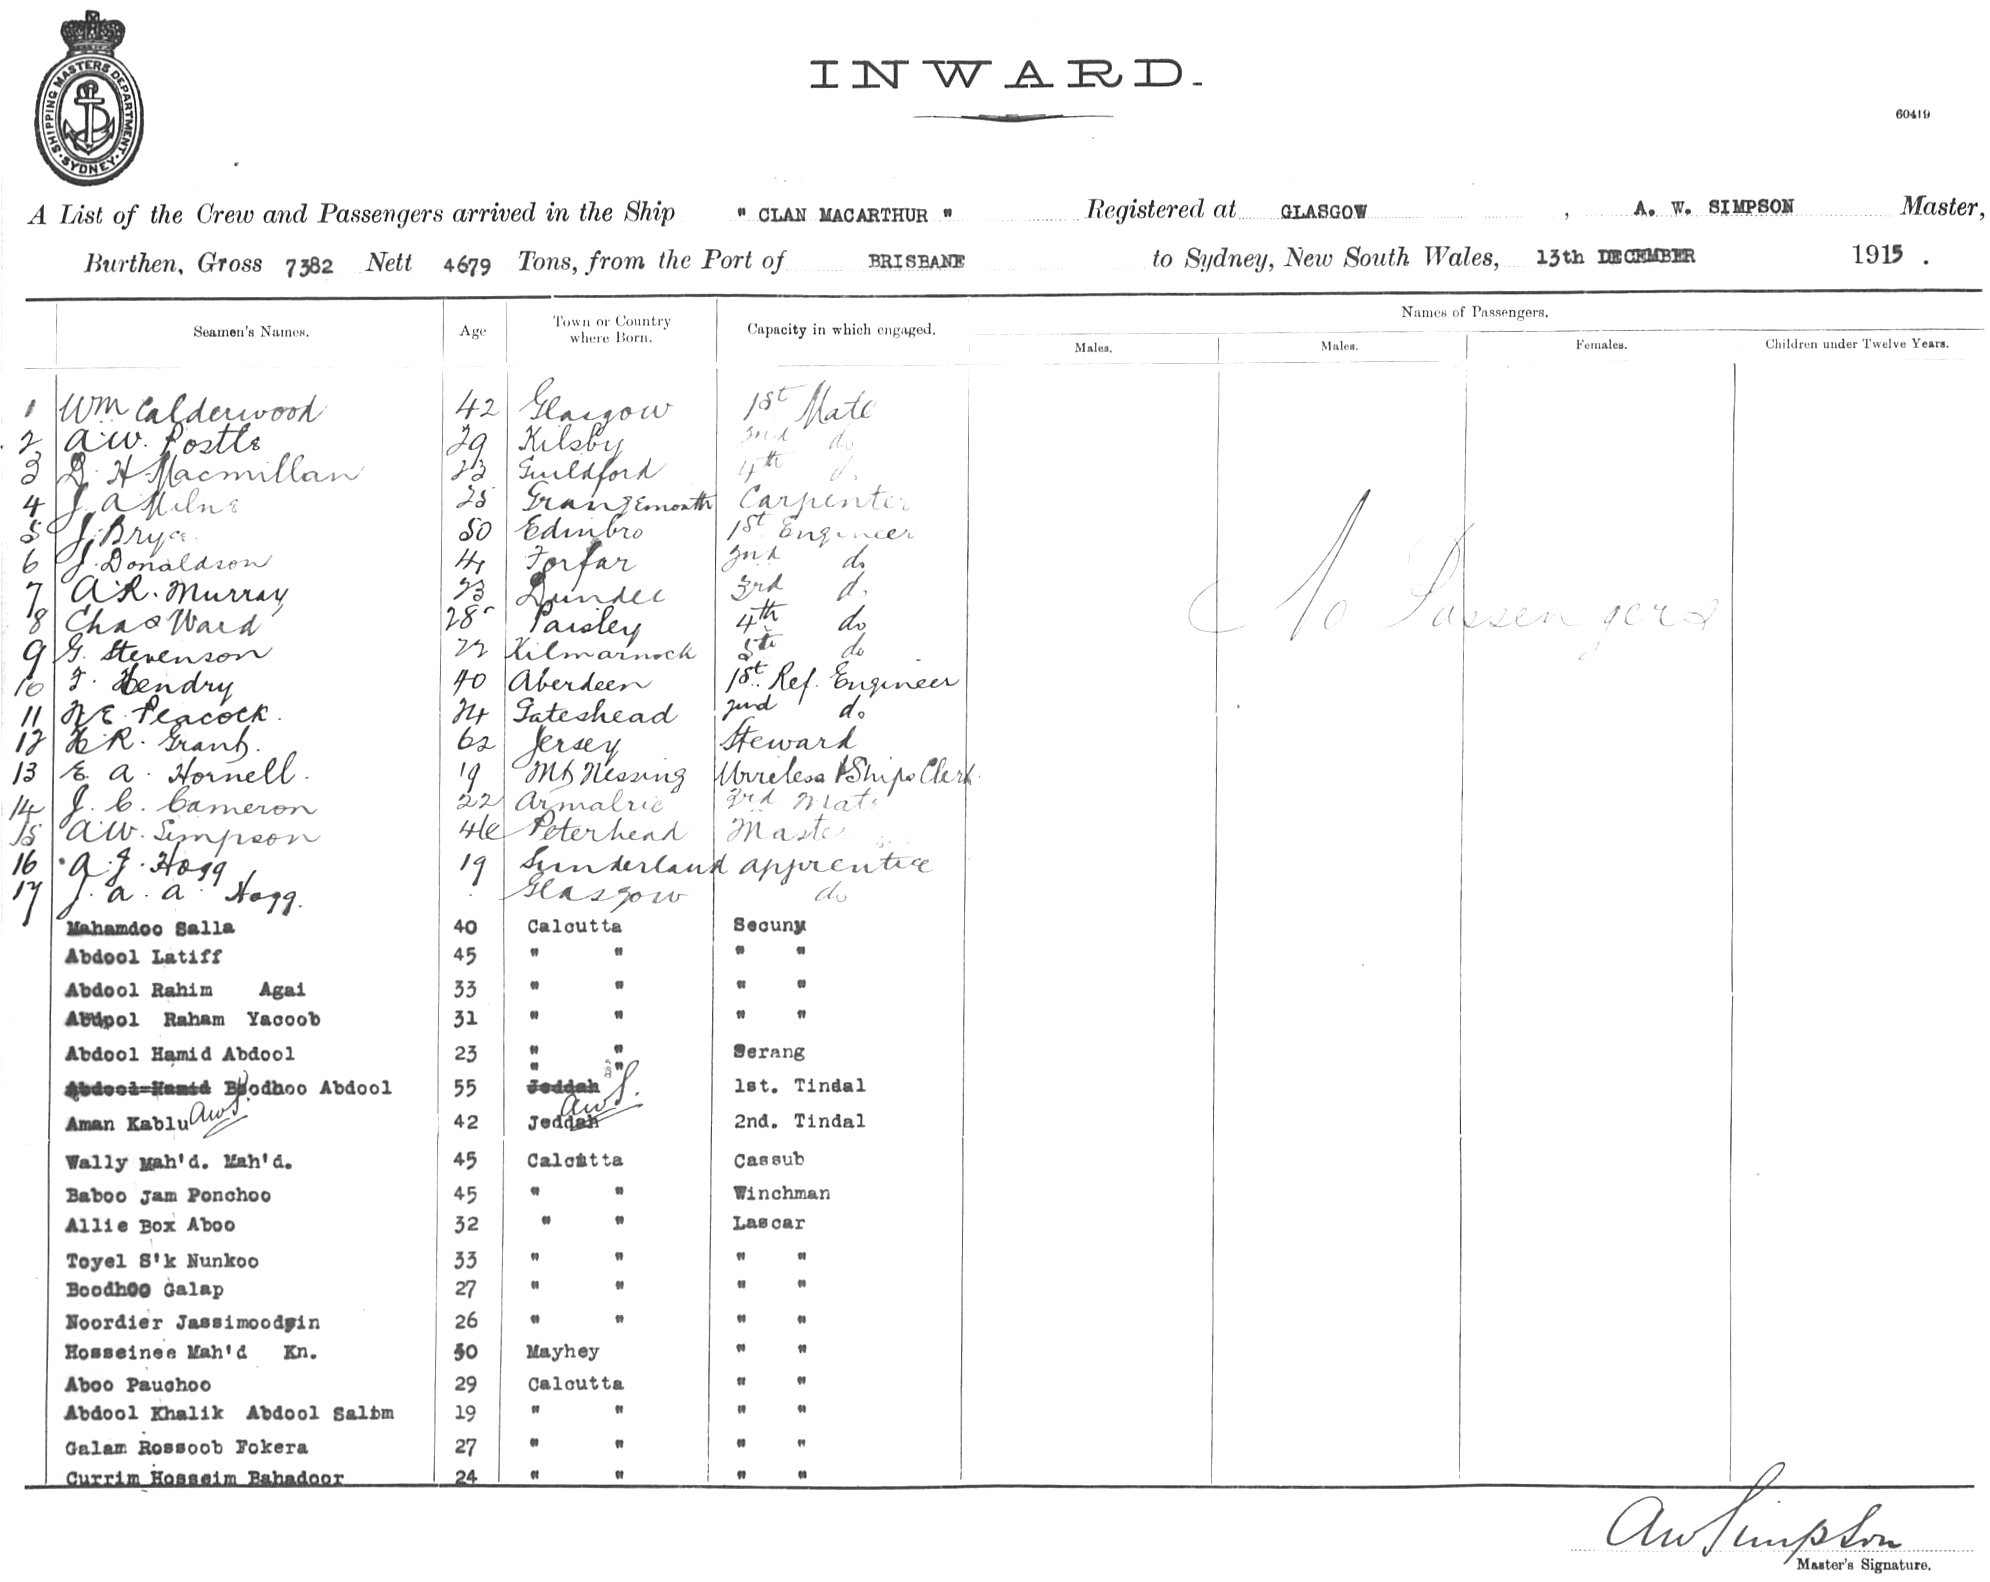 SHIPPING MASTERS DEPARTMENT · SYDNEY ·
INWARD.
60419
A List of the Crew and Passengers arrived in the Ship " CLAN MACARTHUR " Registered at GLASGOW , A. W. SIMPSON Master,
Burthen, Gross 7382 Nett 4679 Tons, from the Port of BRISBANE to Sydney, New South Wales, 13th DECEMBER 1915 .
Seamen's Names. Age Town or Country where Born. Capacity in which engaged. Names of Passengers.
Males. Males. Females. Children under Twelve Years.
1 Wm Calderwood 42 Glasgow 1st Mate
2 A.W. Postle 29 Kilsby 2nd do
3 D. H. Macmillan 23 Guildford 4th do
4 J. A Milne 25 Grangemouth Carpenter
5 J. Bryce 50 Edinbro 1st Engineer
6 J. Donaldson 41 Forfar 2nd do
7 A.R. Murray 23 Dundee 3rd do
8 Chas Ward 28 Paisley 4th do
9 G. Stevenson 22 Kilmarnock 5th do
10 F. Hendry 40 Aberdeen 1st Ref. Engineer
11 N.E. Peacock. 24 Gateshead 2nd do
12 H.R. Grant. 62 Jersey Steward
13 E. A. Hornell. 19 Mt Nessing Wireless & Ships Clerk
14 J. C. Cameron 22 Armalric 3rd Mate
15 A.W. Simpson 46 Peterhead Master
16 A. J. Hogg 19 Sunderland apprentice
17 J. A. A. Hogg. Glasgow do
No Passengers
Mahamdoo Salla 40 Calcutta Secuny
Abdool Latiff 45 " " " "
Abdool Rahim Agai 33 " " " "
Abdool Raham Yacoob 31 " " " "
Abdool Hamid Abdool 23 " " Serang
" "
Abdool Hamid Boodhoo Abdool 55 Jeddah 1st. Tindal
AWS. AWS.
Aman Kablu 42 Jeddah 2nd. Tindal
Wally Mah'd. Mah'd. 45 Calcutta Cassub
Baboo Jam Ponchoo 45 " " Winchman
Allie Box Aboo 32 " " Lascar
Toyel S'k Nunkoo 33 " " " "
Boodhoo Galap 27 " " " "
Noordier Jassimoodyin 26 " " " "
Hosseinee Mah'd Kn. 50 Mayhey " "
Aboo Pauchoo 29 Calcutta " "
Abdool Khalik Abdool Salim 19 " " " "
Galam Rossoob Fokera 27 " " " "
Currim Hosseim Bahadoor 24 " " " "
AW Simpson
Master's Signature.